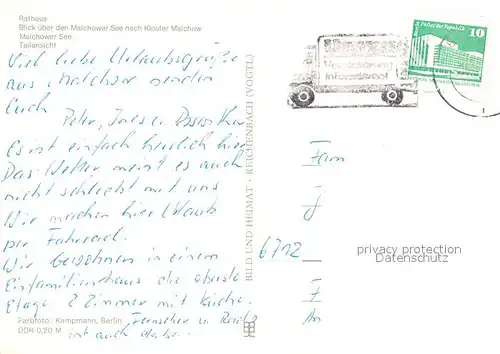 Rathaus
Blick über den Malchower See nach Kloster Malchow
Malchower See
Teilansicht
Viel liebe Urlaubsgrüße
aus Malchow senden
Euch
Peter, Ines u.
Es ist einfach herrlich hier
Das Wetter meint es auch
nicht schlecht mit uns
Wir machen hier Urlaub
per Fahrrad.
Wir bewohnen in einem
Einfamilienhaus die oberste
Etage 2 Zimmer mit Küche.
Fernseher u. Radio
ist auch da.
Farbfoto: Kampmann, Berlin
DDR 0,20 M
BILD UND HEIMAT · REICHENBACH (VOGTL)
Berlin, Palast der Republik
10
Fam
6712
privacy protection
Datenschutz